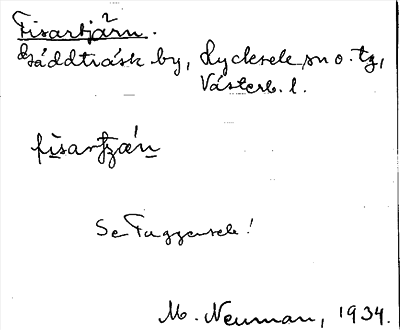 Fisartjärn.
Gäddträsk by, Lycksele sn o. tg,
Västerb. l.
Se Tuggensele!
M. Neuman, 1934.